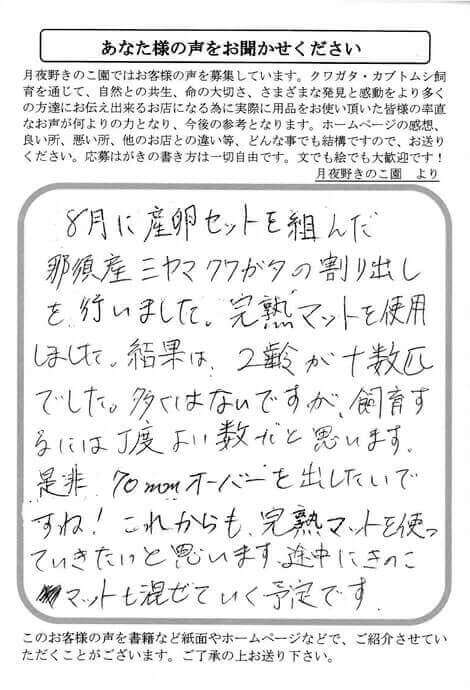 あなた様の声をお聞かせください
月夜野きのこ園ではお客様の声を募集しています。クワガタ・カブトムシ飼
育を通じて、自然との共生、命の大切さ、さまざまな発見と感動をより多く
の方達にお伝え出来るお店になる為に実際に用品をお使い頂いた皆様の率直
なお声が何よりの力となり、今後の参考となります。ホームページの感想、
良い所、悪い所、他のお店との違い等、どんな事でも結構ですので、お送り
ください。応募はがきの書き方は一切自由です。文でも絵でも大歓迎です！
月夜野きのこ園　より
8月に産卵セットを組んだ
那須産ミヤマクワガタの割り出し
を行いました。完熟マットを使用
しました。結果は、2齢が十数匹
でした。多くはないですが、飼育す
るには丁度よい数だと思います。
是非 70mmオーバーを出したいで
すね！これからも、完熟マットを使っ
ていきたいと思います。途中にきのこ
マットも混ぜていく予定です。
このお客様の声を書籍など紙面やホームページなどで、ご紹介させてい
ただくことがございます。ご了承の上お送り下さい。